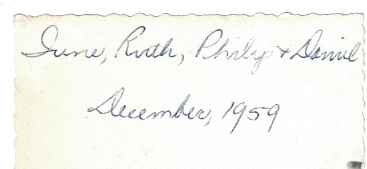 June, Ruth, Philip & Daniel
December, 1959